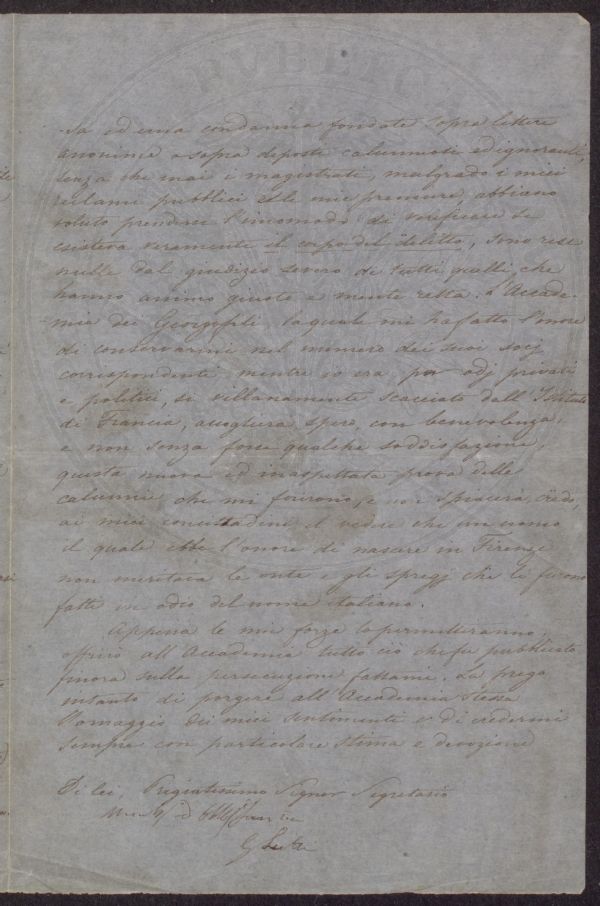 sa ed una condanna fondate sopra lettere
anonime o sopra deposti calunniosi ed ignoranti,
senza che mai i magistrati, malgrado i miei
reclami pubblici e le mie premure, abbiano
voluto prendersi l'incomodo di verificare se
esisteva veramente il corpo del delitto, sono rese
nulle dal giudizio severo di tutti quelli che
hanno animo giusto e mente retta. L'Accade-
mia dei Georgofili la quale mi ha fatto l'onore
di conservarmi nel numero dei suoi socj
corrispondenti mentre io era per odj privati
e politici, sì villanamente scacciato dall'Istituto
di Francia, accoglierà, spero, con benevolenza,
e non senza forse qualche soddisfazione,
questa nuova ed inaspettata prova delle
calunnie che mi ferirono, e non spiacerà, credo,
ai miei concittadini il vedere che un uomo
il quale ebbe l'onore di nascere in Firenze
non meritava le onte e gli spregj che le furono
fatti in odio del nome italiano.
Appena le mie forze lo permetteranno,
offrirò all'Accademia tutto ciò che fu pubblicato
finora sulla persecuzione fattami. La prego
intanto di porgere all'Accademia stessa
l'omaggio dei miei sentimenti e di credermi
sempre con particolare stima e devozione
Di lei, Pregiatissimo Signor Segretario
G